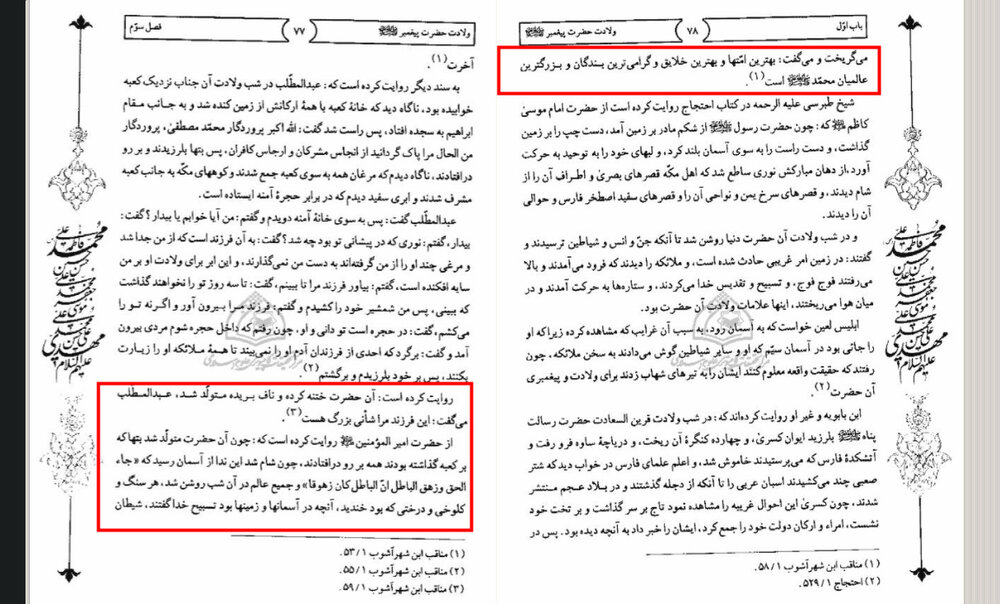 فصل سوّم
۷۷
ولادت حضرت پیغمبر ﷺ
آخرت(۱).
به سند دیگر روایت کرده است که: عبدالمطّلب در شب ولادت آن جناب نزدیک کعبه
خوابیده بود، ناگاه دید که خانهٔ کعبه با همهٔ ارکانش از زمین کنده شد و به جانب مقام
ابراهیم به سجده افتاد، پس راست شد گفت: الله اکبر پروردگار محمّد مصطفیٰ، پروردگار
من الحال مرا پاک گردانید از انجاس مشرکان و ارجاس کافران، پس بتها بلرزیدند و بر رو
درافتادند، ناگاه دیدم که مرغان همه به سوی کعبه جمع شدند و کوههای مکّه به جانب کعبه
مشرف شدند و ابری سفید دیدم که در برابر حجرهٔ آمنه ایستاده است.
عبدالمطّلب گفت: پس به سوی خانهٔ آمنه دویدم و گفتم: من آیا خوابم یا بیدار؟ گفت:
بیدار، گفتم: نوری که در پیشانی تو بود چه شد؟ گفت: به آن فرزند است که از من جدا شد
و مرغی چند او را از من گرفته‌اند به دست من نمی‌گذارند، و این ابر برای ولادت او بر من
سایه افکنده است، گفتم: بیاور فرزند مرا تا ببینم، گفت: تا سه روز تو را نخواهند گذاشت
که ببینی، پس من شمشیر خود را کشیدم و گفتم: فرزند مرا بیرون آور و اگرنه تو را
می‌کشم، گفت: در حجره است تو دانی و او، چون رفتم که داخل حجره شوم مردی بیرون
آمد و گفت: برگرد که احدی از فرزندان آدم او را نمی‌بیند تا همهٔ ملائکه او را زیارت
بکنند، پس بر خود بلرزیدم و برگشتم(۲).
روایت کرده است: آن حضرت ختنه کرده و ناف بریده متولّد شد، عبدالمطلب
می‌گفت: این فرزند مرا شأنی بزرگ هست(۳).
از حضرت امیر المؤمنین ﷺ روایت کرده است که: چون آن حضرت متولّد شد بتها که
بر کعبه گذاشته بودند همه بر رو درافتادند، چون شام شد این ندا از آسمان رسید که «جاء
الحق وزهق الباطل انّ الباطل کان زهوقا» و جمیع عالم در آن شب روشن شد، هر سنگ و
کلوخی و درختی که بود خندید، آنچه در آسمانها و زمینها بود تسبیح خدا گفتند، شیطان
(۱) مناقب ابن شهرآشوب ۱/ ۵۳.
(۲) مناقب ابن شهرآشوب ۱/ ۵۵.
(۳) مناقب ابن شهرآشوب ۱/ ۵۹.
باب اوّل
۷۸
ولادت حضرت پیغمبر ﷺ
می‌گریخت و می‌گفت: بهترین امّتها و بهترین خلایق و گرامی‌ترین بندگان و بزرگترین
عالمیان محمّد ﷺ است(۱).
شیخ طبرسی علیه الرحمه در کتاب احتجاج روایت کرده است از حضرت امام موسیٰ
کاظم ﷺ که: چون حضرت رسول ﷺ از شکم مادر بر زمین آمد، دست چپ را بر زمین
گذاشت، و دست راست را به سوی آسمان بلند کرد، و لبهای خود را به توحید به حرکت
آورد، از دهان مبارکش نوری ساطع شد که اهل مکّه قصرهای بصریٰ و اطراف آن را از
شام دیدند، و قصرهای سرخ یمن و نواحی آن را و قصرهای سفید اصطخر فارس و حوالی
آن را دیدند.
و در شب ولادت آن حضرت دنیا روشن شد تا آنکه جنّ و انس و شیاطین ترسیدند و
گفتند: در زمین امر غریبی حادث شده است، و ملائکه را دیدند که فرود می‌آمدند و بالا
می‌رفتند فوج فوج، و تسبیح و تقدیس خدا می‌کردند، و ستاره‌ها به حرکت آمدند و در
میان هوا می‌ریختند، اینها علامات ولادت آن حضرت بود.
ابلیس لعین خواست که به آسمان رود، به سبب آن غرایب که مشاهده کرده زیرا که او
را جائی بود در آسمان سیّم که او و سایر شیاطین گوش می‌دادند به سخن ملائکه، چون
رفتند که حقیقت واقعه معلوم کنند ایشان را به تیرهای شهاب زدند برای ولادت و پیغمبری
آن حضرت(۲).
ابن بابویه و غیر او روایت کرده‌اند که: در شب ولادت قرین السعادت حضرت رسالت
پناه ﷺ بلرزید ایوان کسریٰ، و چهارده کنگرهٔ آن ریخت، و دریاچهٔ ساوه فرو رفت و
آتشکدهٔ فارس که می‌پرستیدند خاموش شد، و اعلم علمای فارس در خواب دید که شتر
صعبی چند می‌کشیدند اسبان عربی را تا آنکه از دجله گذشتند و در بلاد عجم منتشر
شدند، چون کسریٰ این احوال غریبه را مشاهده نمود تاج بر سر گذاشت و بر تخت خود
نشست، امراء و ارکان دولت خود را جمع کرد، ایشان را خبر داد به آنچه دیده بود. پس در
(۱) مناقب ابن شهرآشوب ۱/ ۵۸.
(۲) احتجاج ۱/ ۵۲۹.